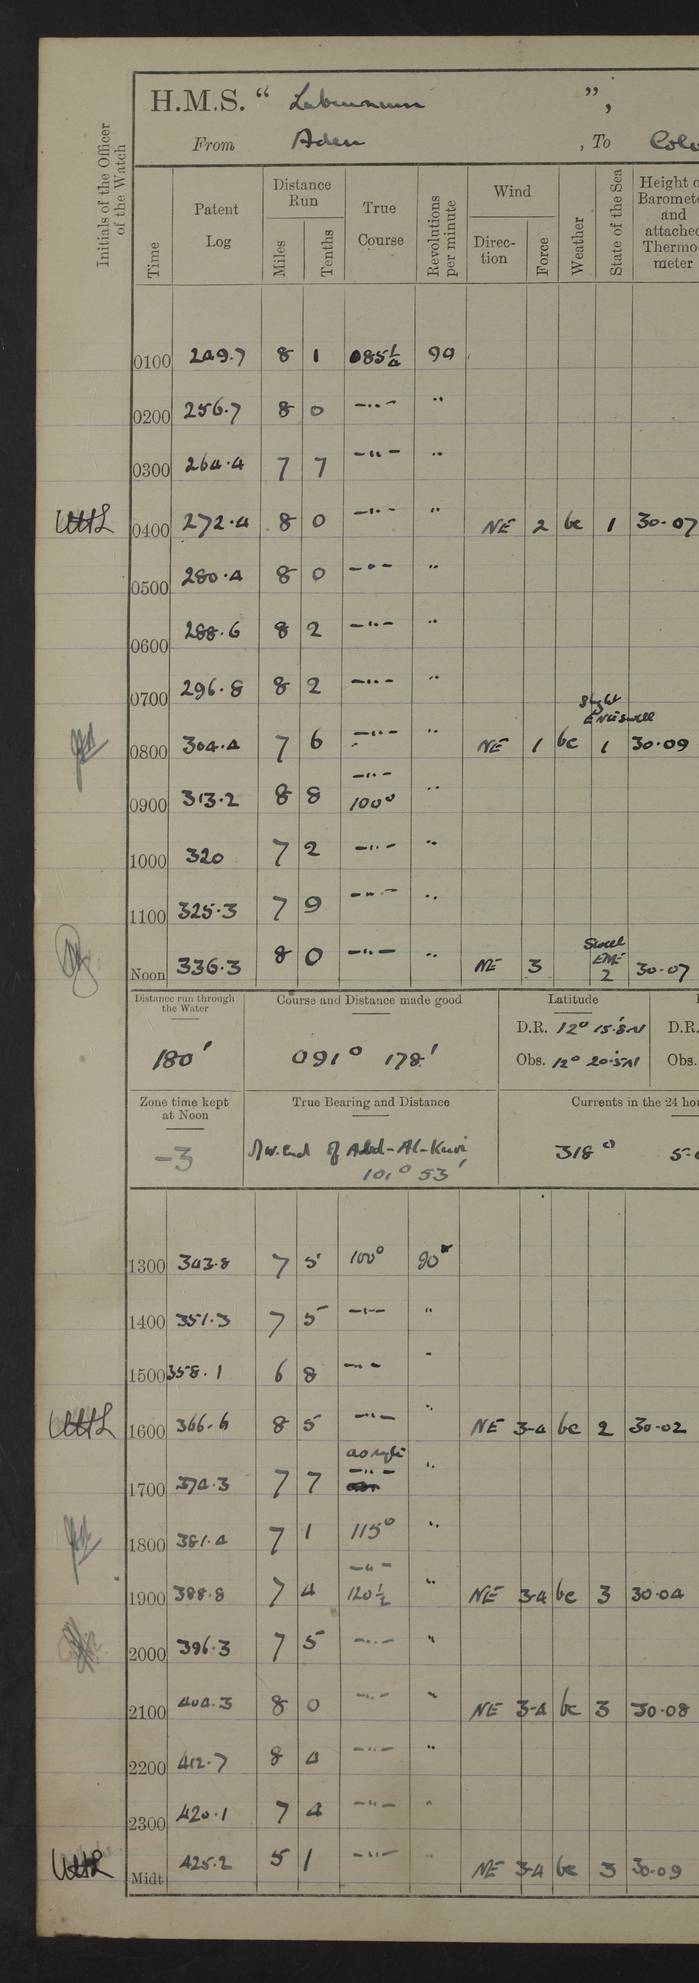 H.M.S. “ Laburnum ”,
From Aden , To Colo
Initials of the Officer of the Watch
Time
Patent Log
Distance Run
Miles
Tenths
True Course
Revolutions per minute
Wind
Direc- tion
Force
Weather
State of the Sea
Height o Baromete and attached Thermo- meter
0100 249.7 8 1 085¼ 90
0200 256.7 8 0 —"— "
0300 264.4 7 7 —"— "
0400 272.4 8 0 —"— " NE 2 bc 1 30.07
0500 280.4 8 0 —"— "
0600 288.6 8 2 —"— "
0700 296.8 8 2 —"— "
Slight
ENE swell
0800 304.4 7 6 —"— " NE 1 bc 1 30.09
—"—
0900 313.2 8 8 100° "
1000 320 7 2 —"— "
1100 325.3 7 9 —"— "
Swell
ENE
Noon 336.3 8 0 —"— " NE 3 2 30.07
Distance run through the Water
180'
Course and Distance made good
091° 178'
Latitude
D.R. 12° 15.8'N D.R.
Obs. 12° 20.5'N Obs.
Zone time kept at Noon
-3
True Bearing and Distance
NW. End of Abd-Al-Kuri
101° 53'
Currents in the 24 hou
318° 5.
1300 343.8 7 5 100° 90
1400 351.3 7 5 —"— "
1500 358.1 6 8 —"— "
1600 366.6 8 5 —"— " NE 3-4 bc 2 30.02
as reqte
1700 374.3 7 7 —"— "
1800 381.4 7 1 115° "
—"—
1900 388.8 7 4 120½ " NE 3-4 bc 3 30.04
2000 396.3 7 5 —"— "
2100 404.3 8 0 —"— " NE 3-4 bc 3 30.08
2200 412.7 8 4 —"— "
2300 420.1 7 4 —"— "
Midt 425.2 5 1 —"— " NE 3-4 bc 3 30.09